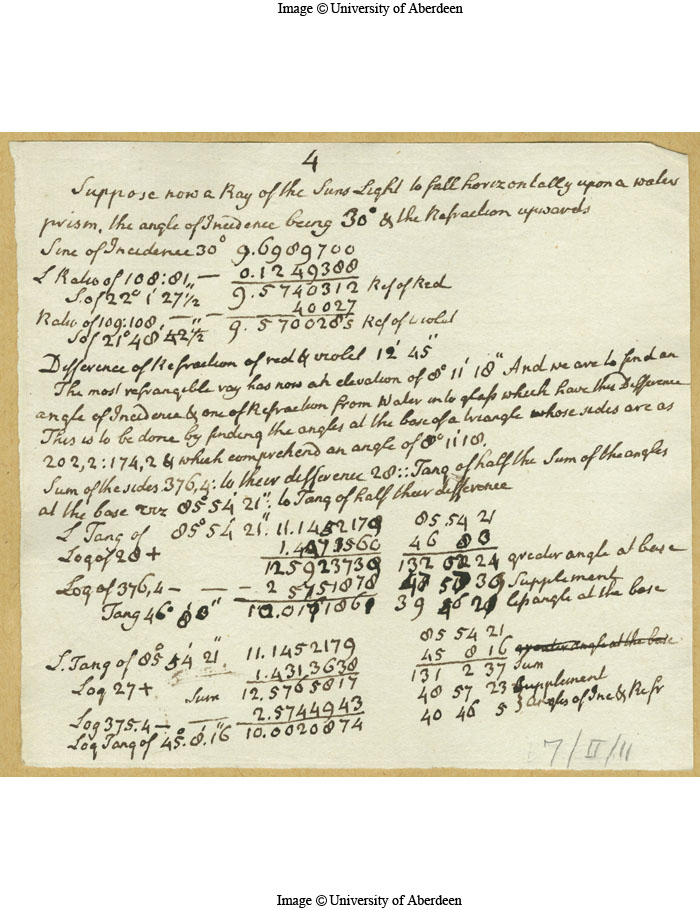 Image © University of Aberdeen
4
Suppose now a Ray of the Suns Light to fall horizontally upon a water
prism, the angle of Incidence being 30° & the Refraction upwards
Sine of Incidence 30° 9.6989700
L Ratio of 108:81, — 0.1249388
S. of 22° 1' 27"½ 9.5740312 Ref of Red
Ratio of 109:108 — — 40027
S of 21° 48' 42"½ 9.5700285 Ref of violet
Difference of Refraction of red & violet 12' 45"
The most refrangible ray has now an elevation of 8° 11' 18" And we are to find an
angle of Incidence & one of Refraction from Water into glass which have this Difference
This is to be done by finding the angles at the base of a triangle whose sides are as
202,2:174,2 & which comprehend an angle of 8° 11' 18.
Sum of the sides 376,4: to their difference 28:: Tang of half the Sum of the angles
at the base 85° 54' 21": to Tang of half their difference
L Tang of 85° 54' 21". 11.1452179 85. 54 21
Log of 28 + 46 8
12.5923739 132 24 greater angle at base
Log of 376,4 — — — 2 5751878 Supplement
Tang 46° 39 less angle at the base
L. Tang of 85° 54' 21" 11.1452179 85 54 21
Log 27 + 1.4313638 45 8 16 greater angle at the base
Sum 12.5765817 131 2 37 Sum
Log 375.4 — — 2.5744943 48 57 23 Supplement
Log Tang of 45°. 8'. 16" 10.0020874 40 46 5 angles of Inc & Refr
7/II/11
Image © University of Aberdeen